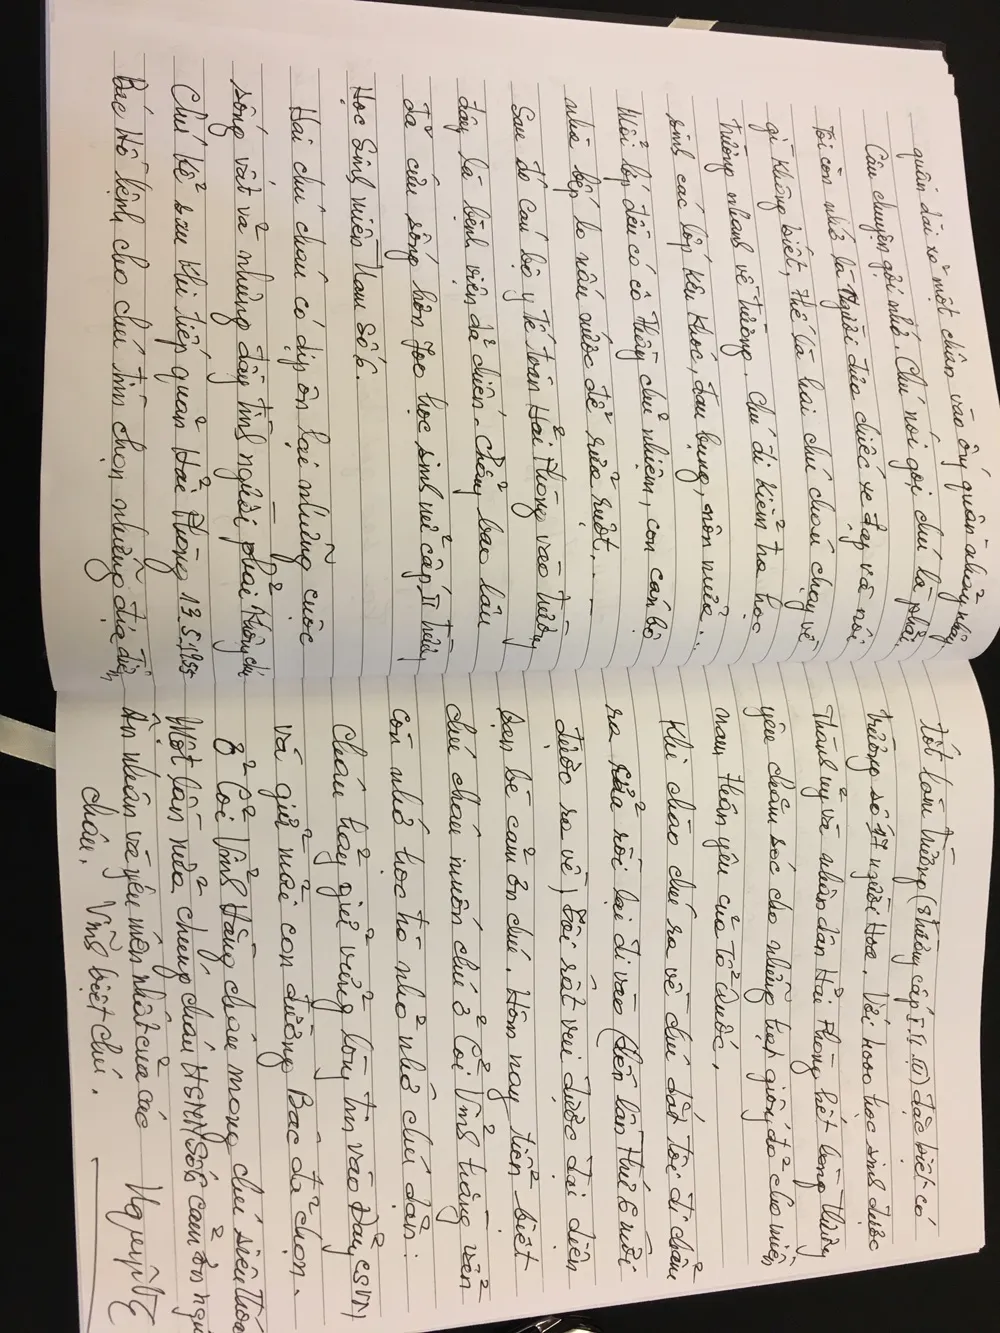 quần dài xỏ một chân vào ống quần nhảy nhảy
Câu chuyện gợi nhớ. Chú nói gọi chú là phải.
Tôi còn nhớ là Người đưa chiếc xe đạp và nói
gì không biết, thế là hai chú cháu chạy về
trường nhanh về trường. Chú đi kiểm tra học
sinh các lớp kêu khóc, đau bụng, nôn mửa...
Mỗi lớp đều có cô thầy chủ nhiệm, con cán bộ
nhà bếp lo nấu nước để rửa ruột...
Sau đó cán bộ y tế toàn Hải Phòng vào trường
đây là bệnh viện dã chiến. Chẳng bao lâu
đã cứu sống hơn 700 học sinh nữ cấp II trường
Học Sinh miền Nam Số 6.
Hai chú cháu có dịp ôn lại những cuộc
sống vất vả nhưng đầy tình người
Chú kể sau khi tiếp quản Hải Phòng 13.5.1955
Bác Hồ lệnh cho chú tìm chọn những địa điểm
tốt làm trường (8 trường cấp I II III) đặc biệt có
trường số 17 người Hoa. Với 14000 học sinh được
Thành uỷ và nhân dân Hải Phòng hết lòng thương
yêu chăm sóc cho những hạt giống đỏ cho miền
nam thân yêu của Tổ Quốc.
Khi chào chú ra về chú dắt tôi đi chầm
ra cửa rồi lại đi vào (đến lần thứ 6 mới
được ra về) tôi rất vui được đại diện
bạn bè cảm ơn chú. Hôm nay tiễn biệt
chú cháu muốn chú ở Cõi Vĩnh hằng vẫn
còn nhớ học trò nhỏ nhớ chú dặn:
Cháu hãy giữ vững lòng tin vào Đảng CSVN
và giữ mãi con đường Bác đã chọn.
Ở Cõi Vĩnh Hằng cháu mong chú siêu thoát
Một lần nữa chúng cháu HSMN Số 6 cảm ơn người
Ân nhân và yêu mến nhất của các
cháu. Vĩnh biệt chú.